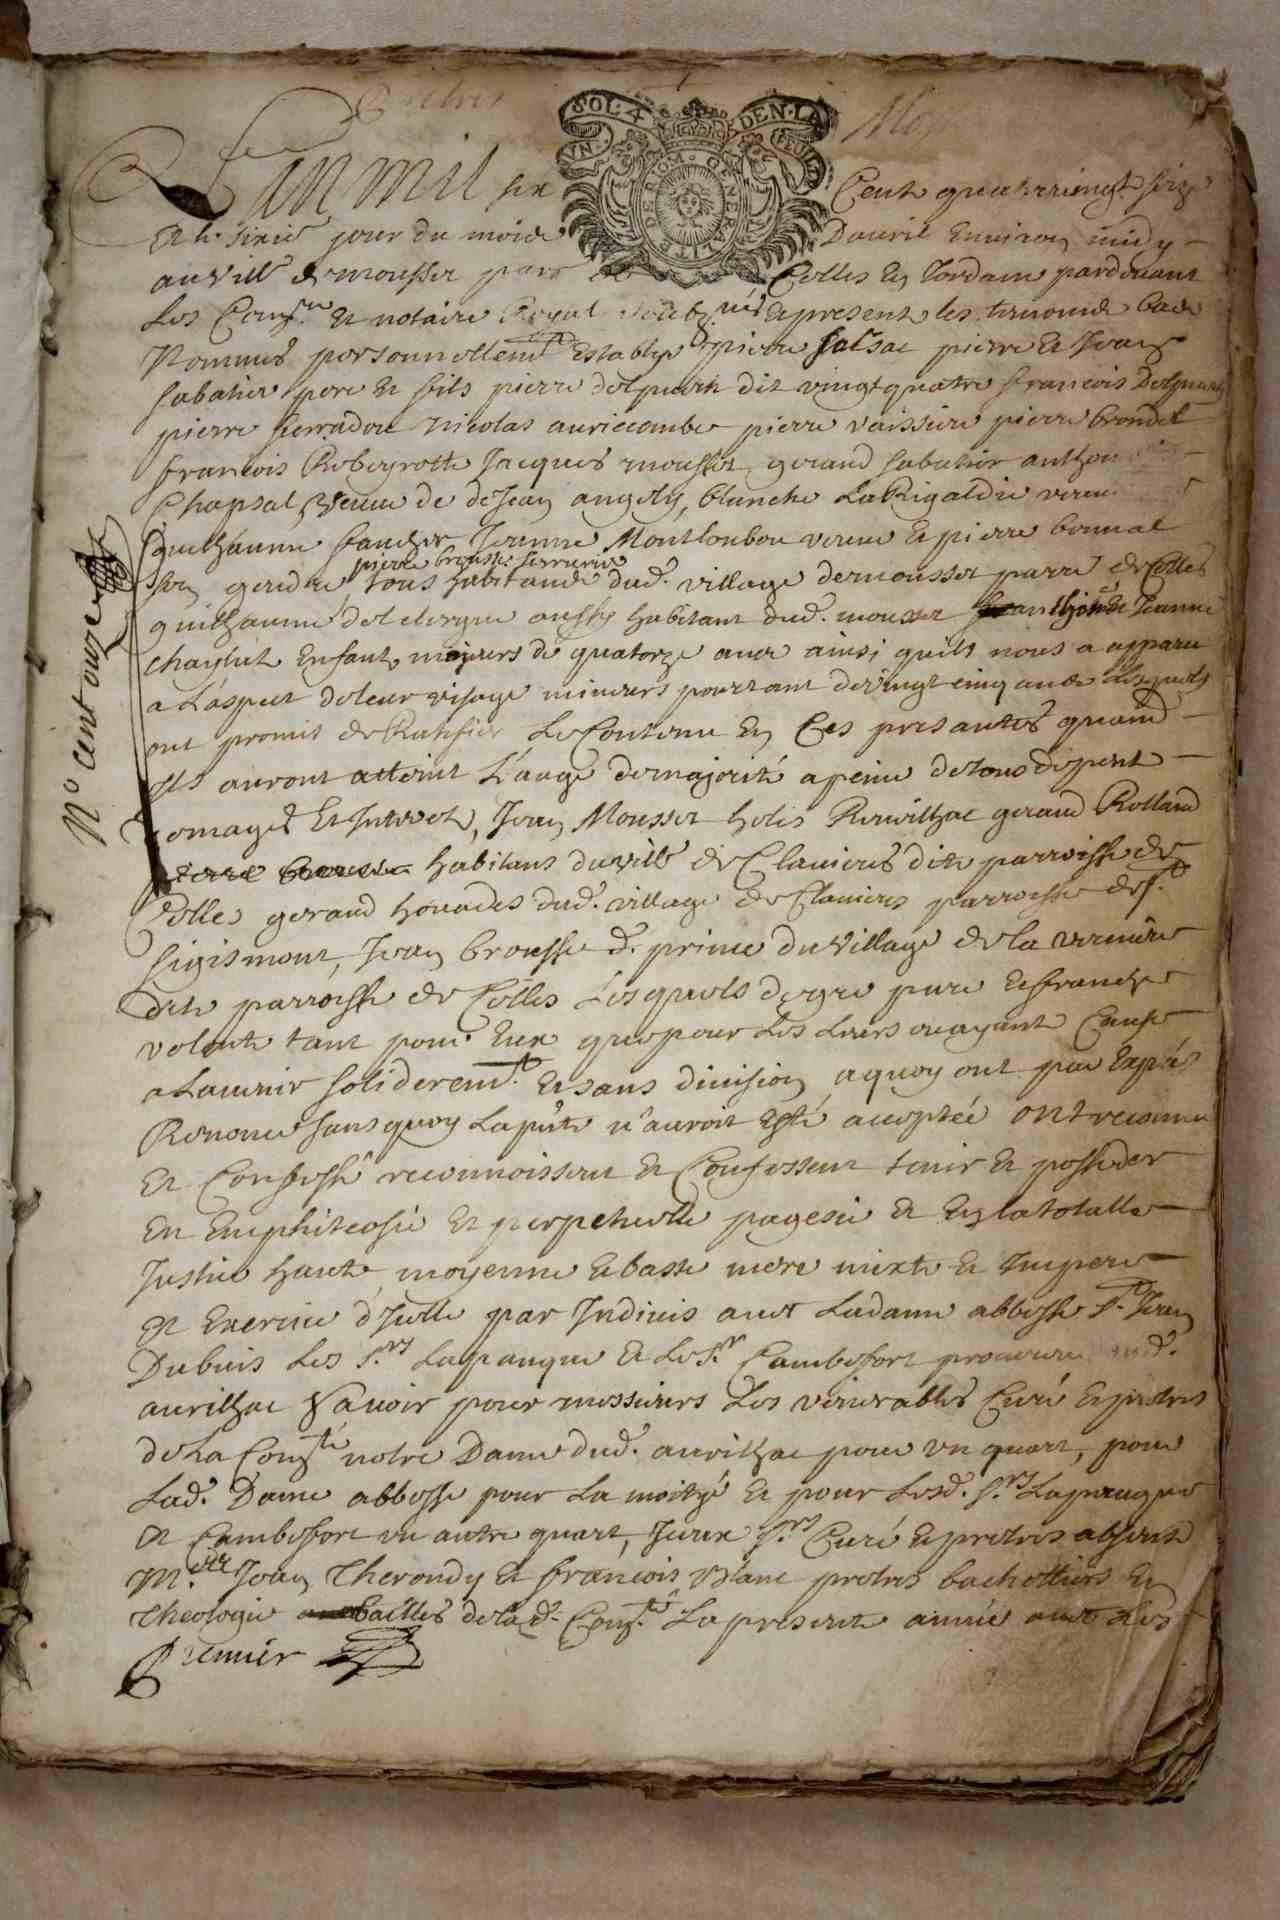 VN · SOL · 4 DEN · LA FEUILLE
GENERALITE DE RIOM
L'an mil six Cent quatrevingt seize
et le sixie jour du mois Dauril Enuiron midy
au vill.e de mousset parr.e de Colles En Jordane pardeuant
Les Cons.rs et notaire Royal soubz.nés et presents les temoins bas
Nommés personnellem.t Establys pierre salsac pierre et Jean
sabatier pere et fils pierre delpuech dit vingtquatre francois Delpuech
pierre serradou nicolas auriccombe pierre vaissiere pierre brondel
francois Robeyrotte Jacques mousset gerand sabatier anthoi
Chapsal veuue de de Jean angely, blanche LaRigaldie veuue
guilhaume faucher Jeanne Montloubou veuue et pierre bonnal
pierre brousse serrurier
son gendre, tous habitans dud. village de mousset parre de Colles
guilhaume deldeuergne aussy habitant dud. mousset anthoine et Jeanne
chaylut Enfants majeurs de quatorze ans ainsi quils nous a apparu
a Laspect de leur visage mineurs pourtant de vingt cinq ans Lesquels
ont promis de Ratifier Le Contenu En Ces presantes quand
Ils auront atteint L'aage de majorité a peine de tous depent
domages Et Interets, Jean Mousset helis Reuilhac gerand Rolland
pierre brousse habitans du vill.e de Clauieres dite parroisse de
Colles gerand houades dud. village de Clauieres parroisse de S.t
Sigismont, Jean brousse d. prince du village de la verniere
dite parroisse de Colles Lesquels de gre pure et franche
volonté tant pour Eux que pour Les Leurs ou ayant Cause
a Lauenir soliderem.t et sans diuision a quoy ont par Exprés
Renoncé sans quoy La pnte n'auroit Esté acceptée ont reconnu
et Confessé reconnoissent et Confessent tenir et posseder
En Emphiteosie et perpetuelle pagesie et En la totalle
Justice haute moyenne et basse mere mixte et Impere
et Exercice d'Icelle par Indiuis auec Ladame abbesse S.t Jean
Dubuis Les S.rs Laparque et Le S.r Cambefort procureur aud.
aurilhac Sauoir pour messieurs Les venerables Curé et pretres
de La Con.té notre Dame dud. aurilhac pour vn quart, pour
Lad. Dame abbesse pour La moityé et pour Lesd. S.rs Laparque
et Cambefort vn autre quart, Iceux S.rs Curé et pretres absents
M.rs Jean Therondy et francois Vblanc pretres bachelliers En
Theologie bailles de lad. Con.té La presente année auec Les
Premier
N.o cent onze